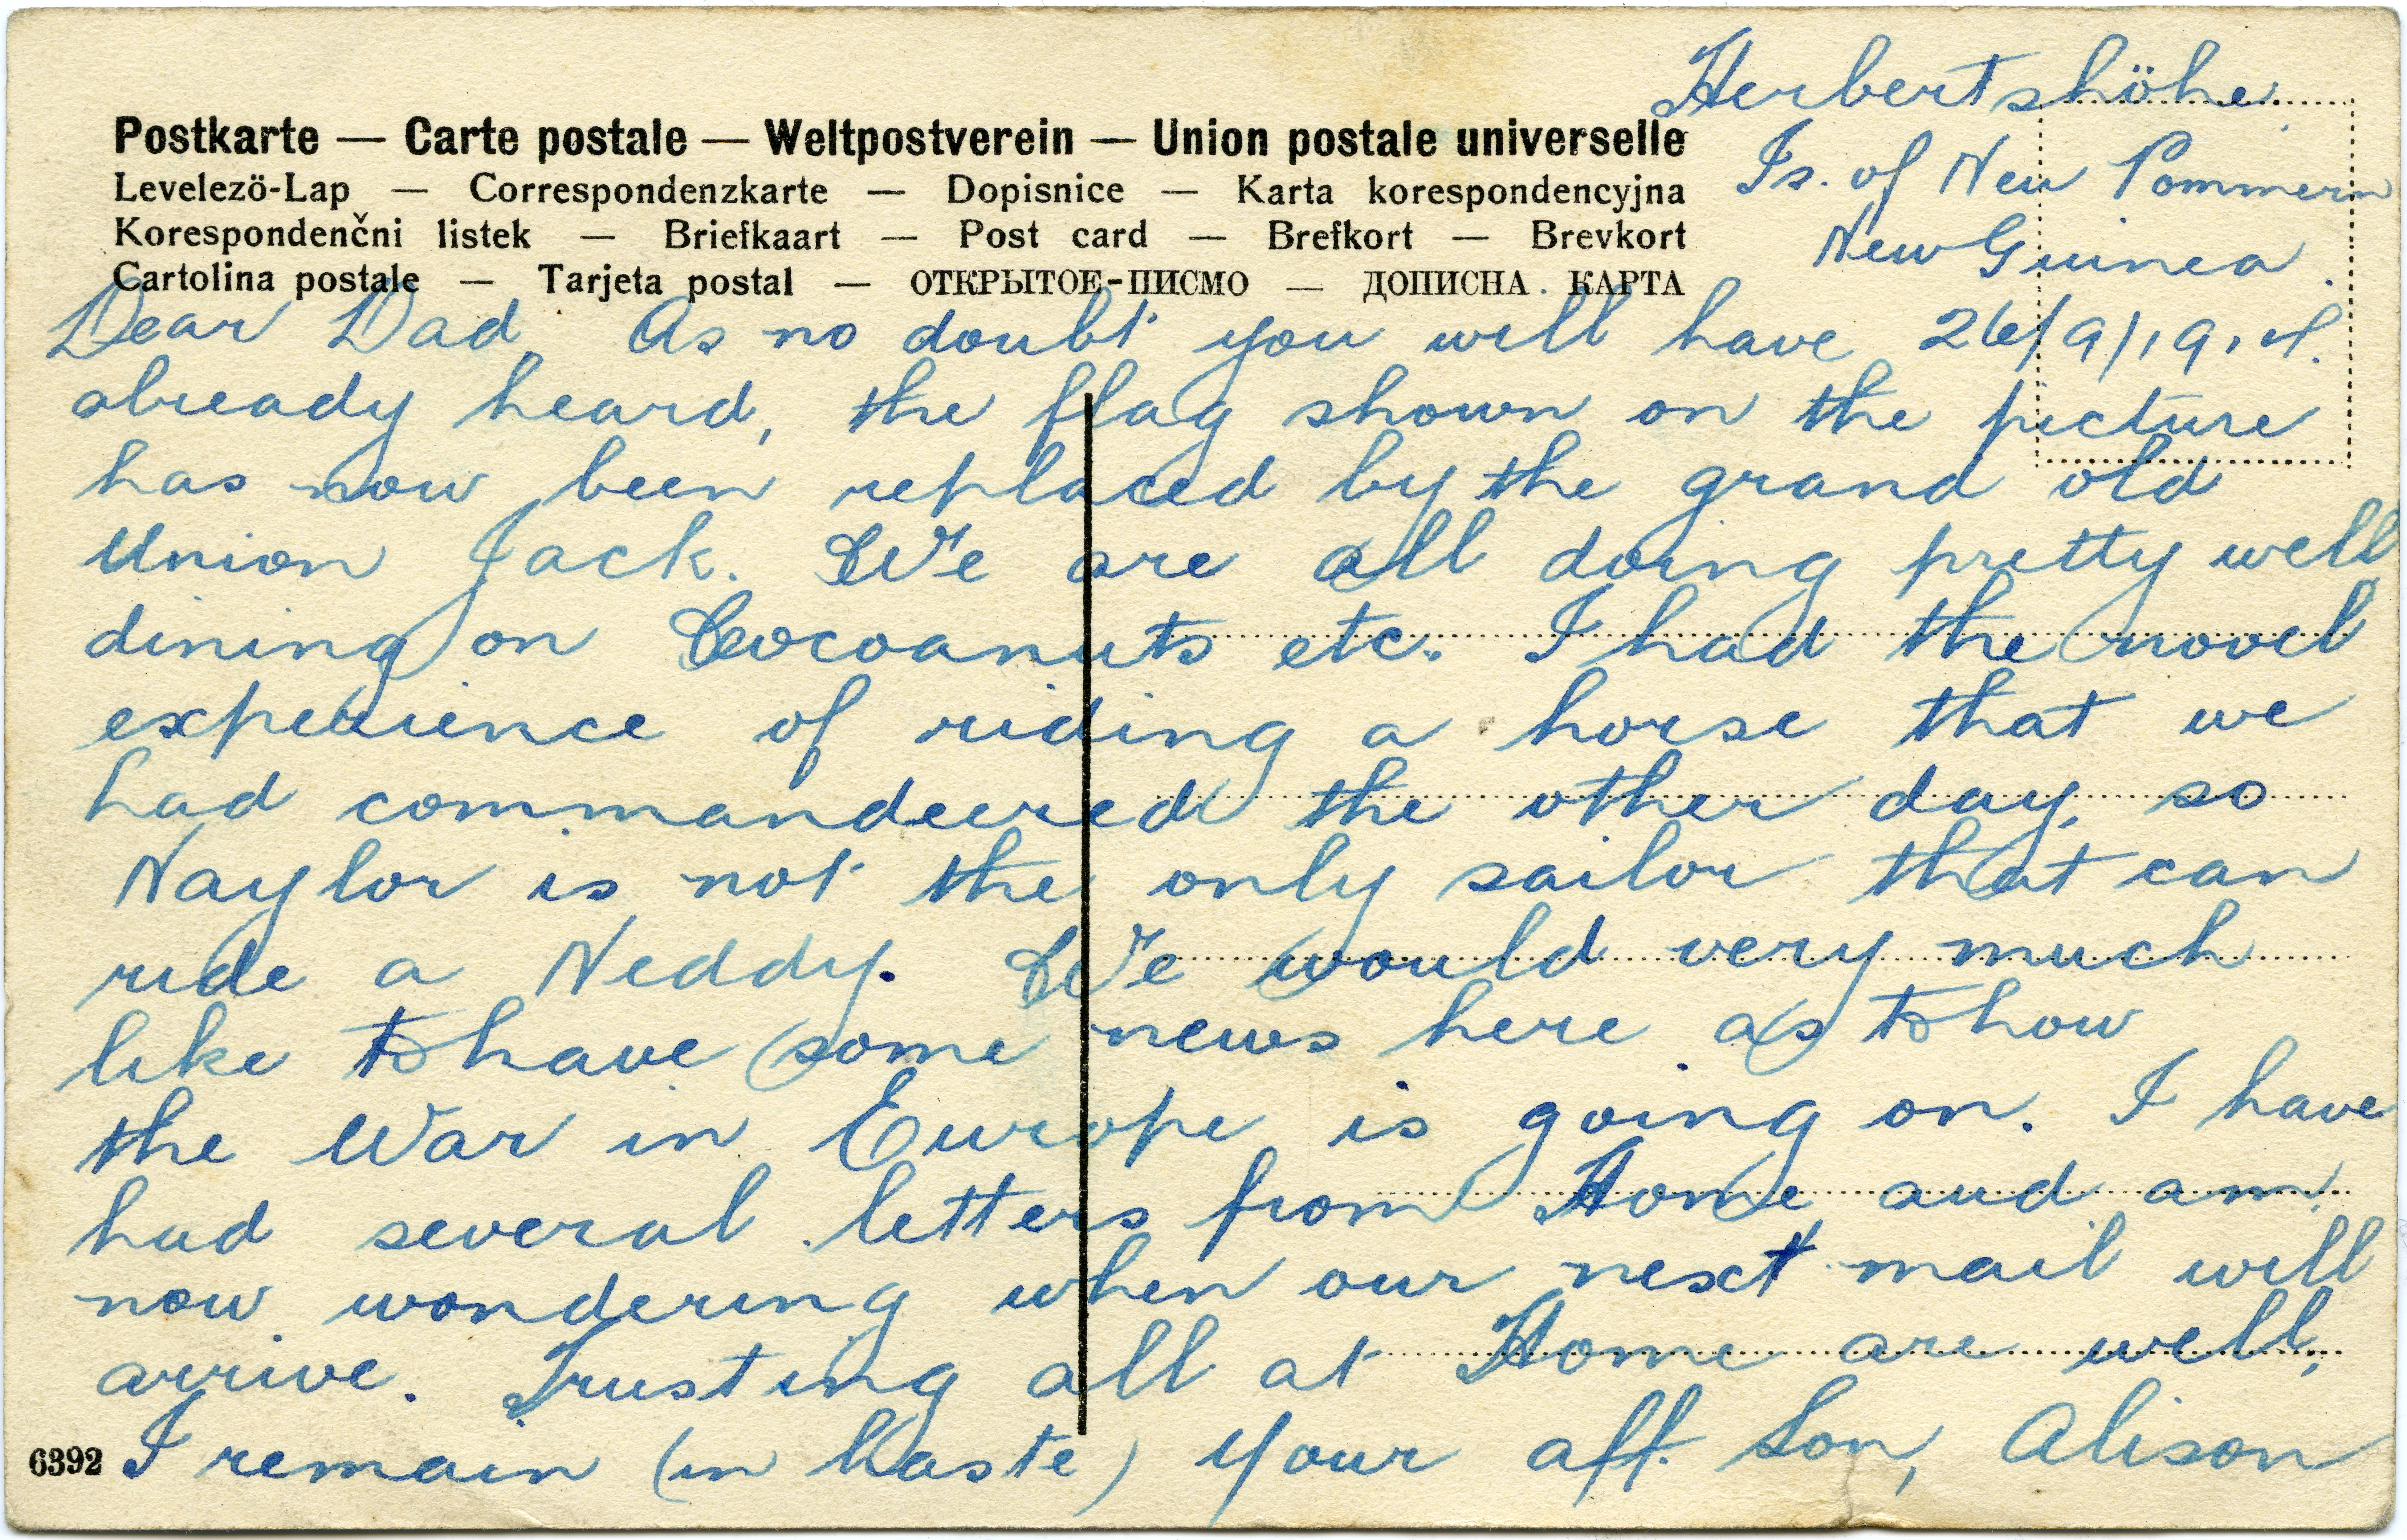 Herbertshöhe.
Postkarte — Carte postale — Weltpostverein — Union postale universelle
Levelezö-Lap — Correspondenzkarte — Dopisnice — Karta korespondencyjna
Is. of Neu Pommern
Korespondenčni listek — Briefkaart — Post card — Brefkort — Brevkort
New Guinea.
Cartolina postale — Tarjeta postal — ОТКРЫТОЕ-ПИСМО — ДОПИСНА КАРТА
26/9/1914.
Dear Dad, As no doubt you will have
already heard, the flag shown on the picture
has now been replaced by the grand old
Union Jack. We are all doing pretty well
dining on Cocoanuts etc. I had the novel
experience of riding a horse that we
had commandeered the other day, so
Naylor is not the only sailor that can
ride a Neddy. We would very much
like to have some news here as to how
the War in Europe is going on. I have
had several letters from Home and am
now wondering when our next mail will
arrive. Trusting all at Home are well,
I remain (in haste) Your aff. Son, Alison
6392